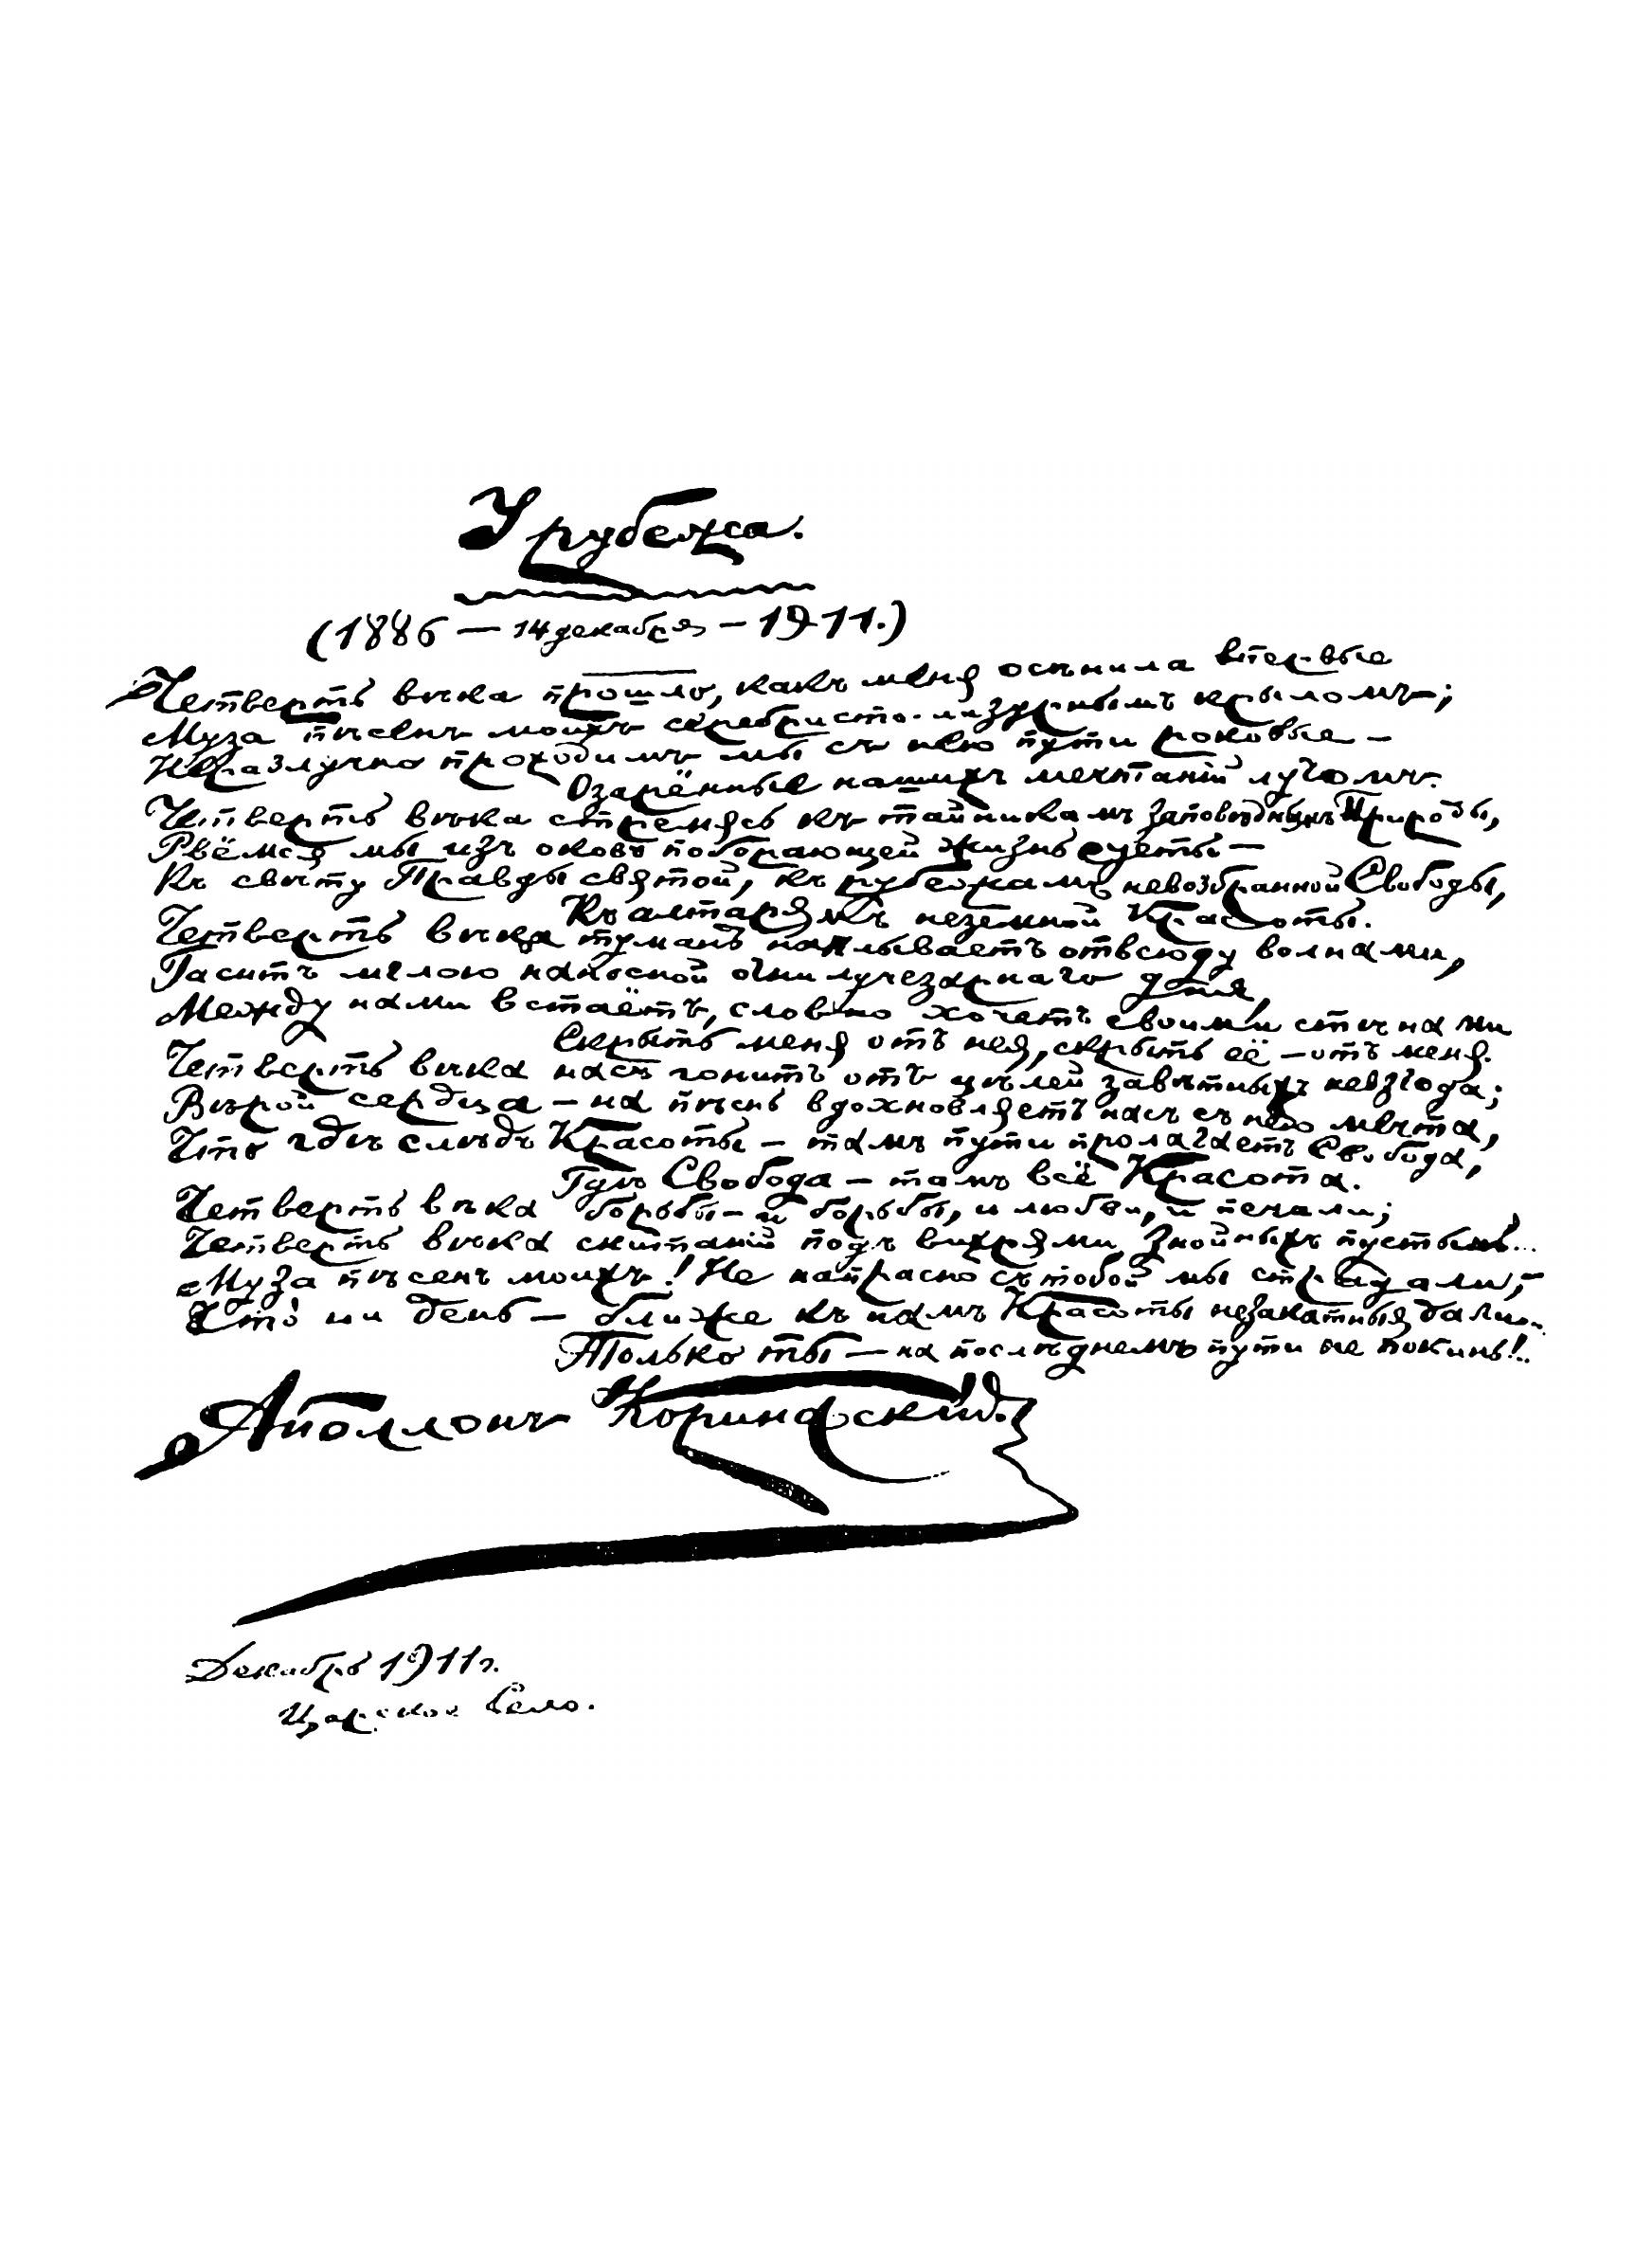 У рубежа.
(1886 — 14 декабря — 1911.)
Четверть вѣка прошло, какъ меня осѣнила впервые
Муза пѣсенъ моихъ серебристо-лазурнымъ крыломъ;
Неразлучно проходимъ мы съ нею пути роковые —
Озарённые нашихъ мечтаній лучомъ.
Четверть вѣка стремясь къ тайникамъ заповѣднымъ Природы,
Рвёмся мы изъ оковъ поборающей жизнь суеты —
Къ свѣту Правды святой, къ рубежамъ невозбранной Свободы,
Къ алтарямъ неземной Красоты.
Четверть вѣка туманъ наплываетъ отвсюду волнами,
Гаситъ мглою наносной огни лучезарнаго дня,
Между нами встаётъ, словно хочетъ своими стѣнами
Скрыть меня отъ нея, скрыть её — отъ меня.
Четверть вѣка насъ гонитъ отъ цѣлей завѣтныхъ невзгода;
Вѣрой сердца — на пѣснь вдохновляетъ насъ съ нею мечта,
Что гдѣ слѣдъ Красоты — тамъ пути пролагаетъ Свобода,
Гдѣ Свобода — тамъ всё Красота.
Четверть вѣка борьбы — и борьбы, и любви, и печали;
Четверть вѣка скитаній подъ вихрями знойныхъ пустынь...
Муза пѣсенъ моихъ! Не напрасно съ тобой мы страдали, —
Что ни день — ближе къ намъ Красоты незакатныя дали...
Только ты — на послѣднемъ пути не покинь!..
Аполлонъ Коринфскій.
Декабрь 1911 г.
Царское Село.